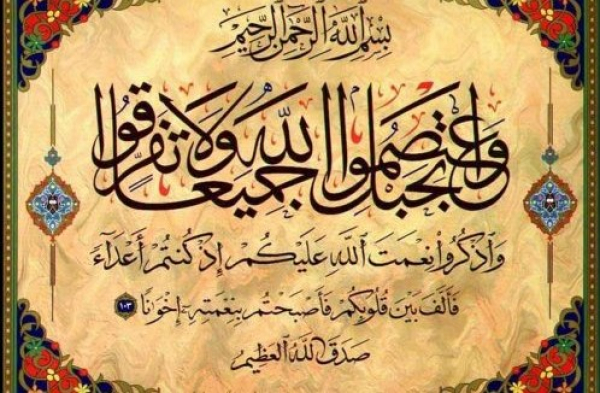 بِسْمِ اللَّهِ الرَّحْمَٰنِ الرَّحِيمِ
وَاعْتَصِمُوا بِحَبْلِ اللَّهِ جَمِيعًا وَلَا تَفَرَّقُوا
وَاذْكُرُوا نِعْمَتَ اللَّهِ عَلَيْكُمْ إِذْ كُنْتُمْ أَعْدَاءً
فَأَلَّفَ بَيْنَ قُلُوبِكُمْ فَأَصْبَحْتُمْ بِنِعْمَتِهِ إِخْوَانًا ١٠٣
صَدَقَ اللَّهُ الْعَظِيمُ